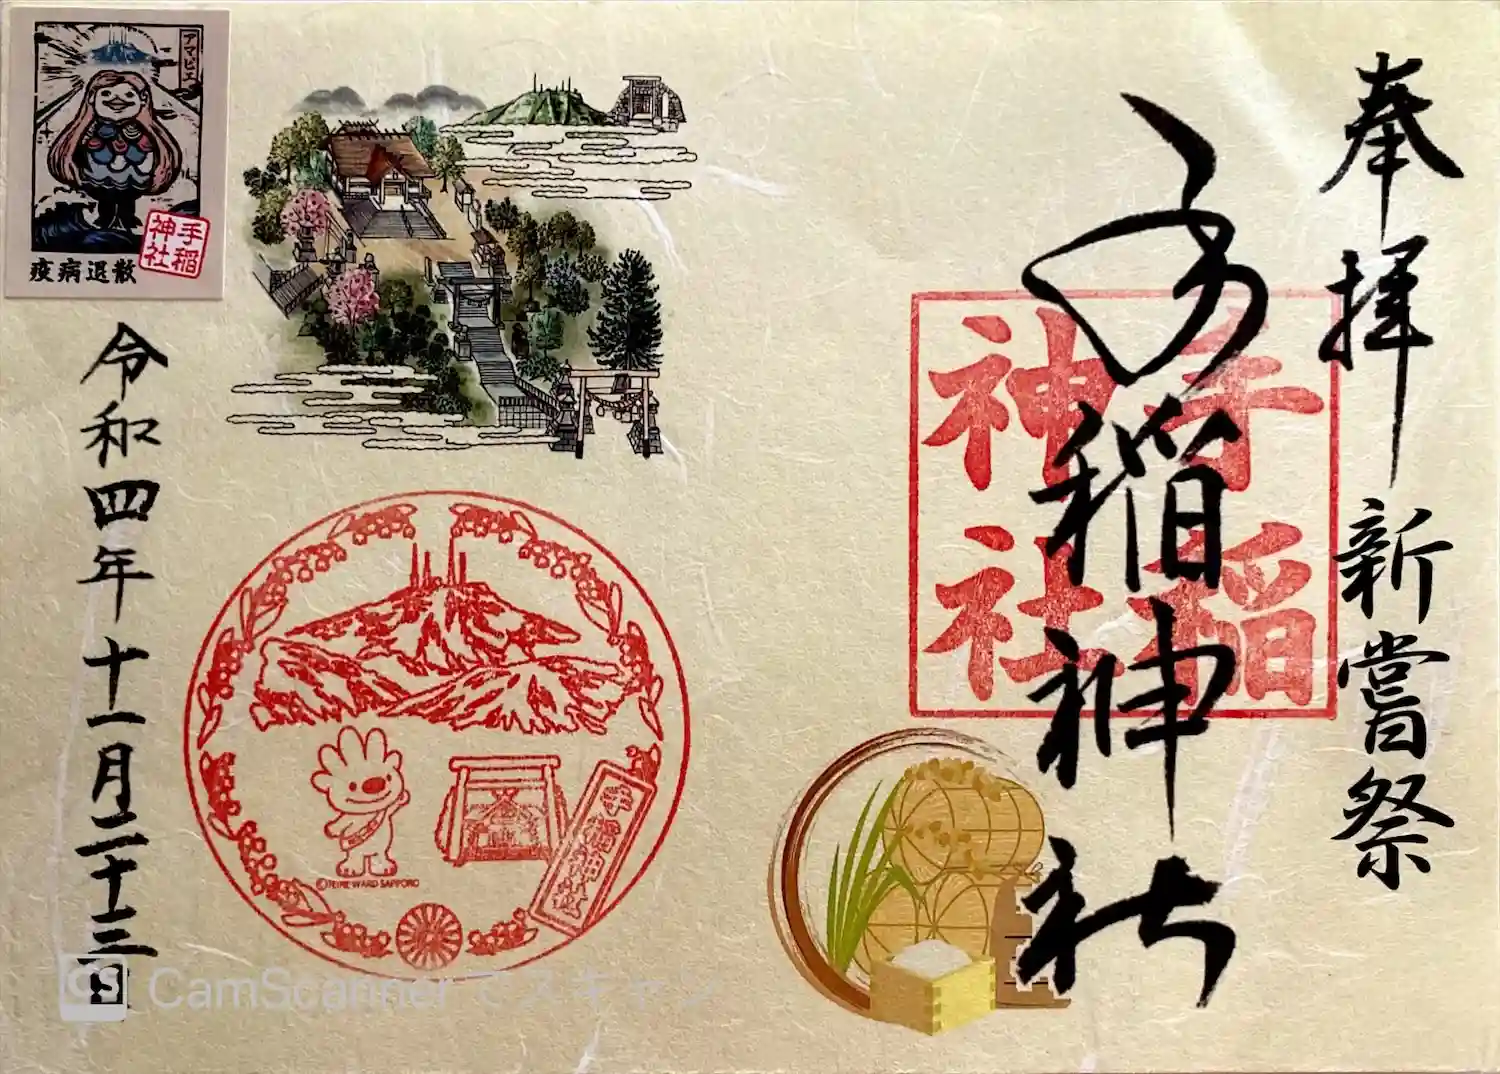 奉拝 新嘗祭
手稲神社
手稲
神社
令和四年十一月二十三日
アマビエ
手稲
神社
疫病退散
手稲神社
©TEINE WARD SAPPORO
CS CamScannerでスキャン